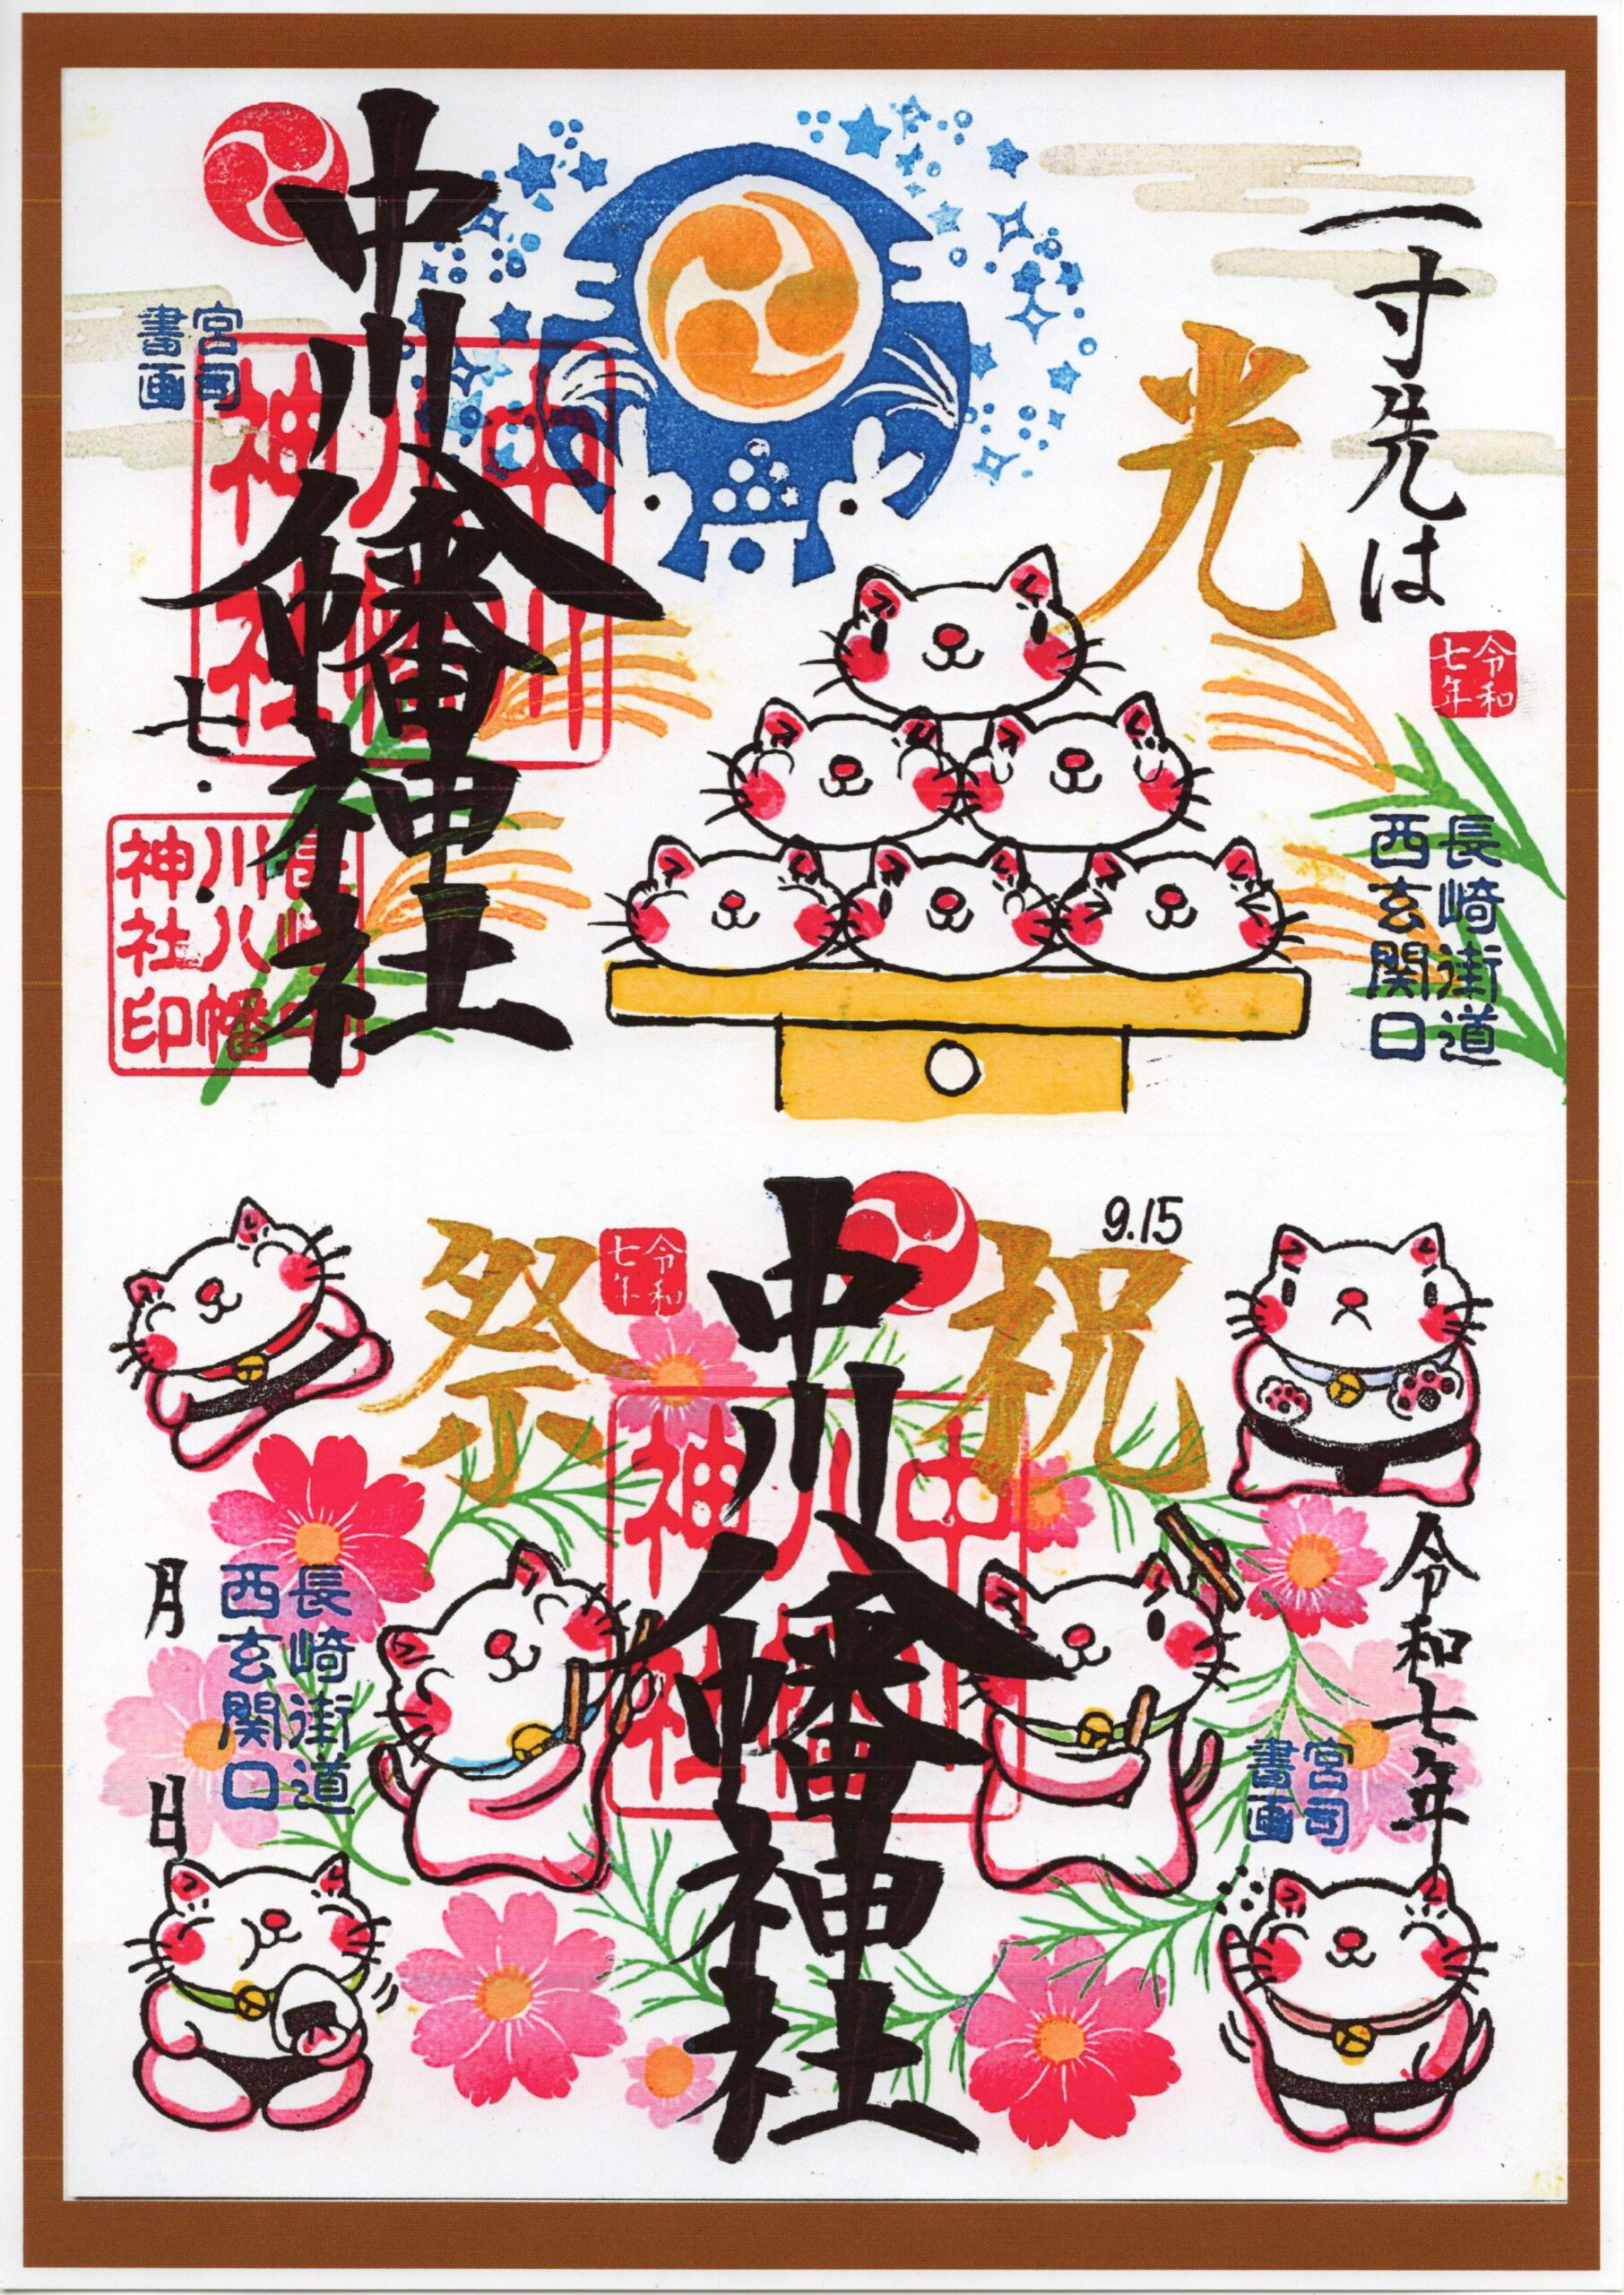 一寸先は
光
令和
七年
長崎街道
西玄関口
中川八幡神社
宮司
書画
七・・
中川八幡神社
長崎中
川八幡
神社印
9.15
祝
祭
令和
七年
中川八幡神社
中川八幡神社
令和七年
宮司
書画
長崎街道
西玄関口
月
日